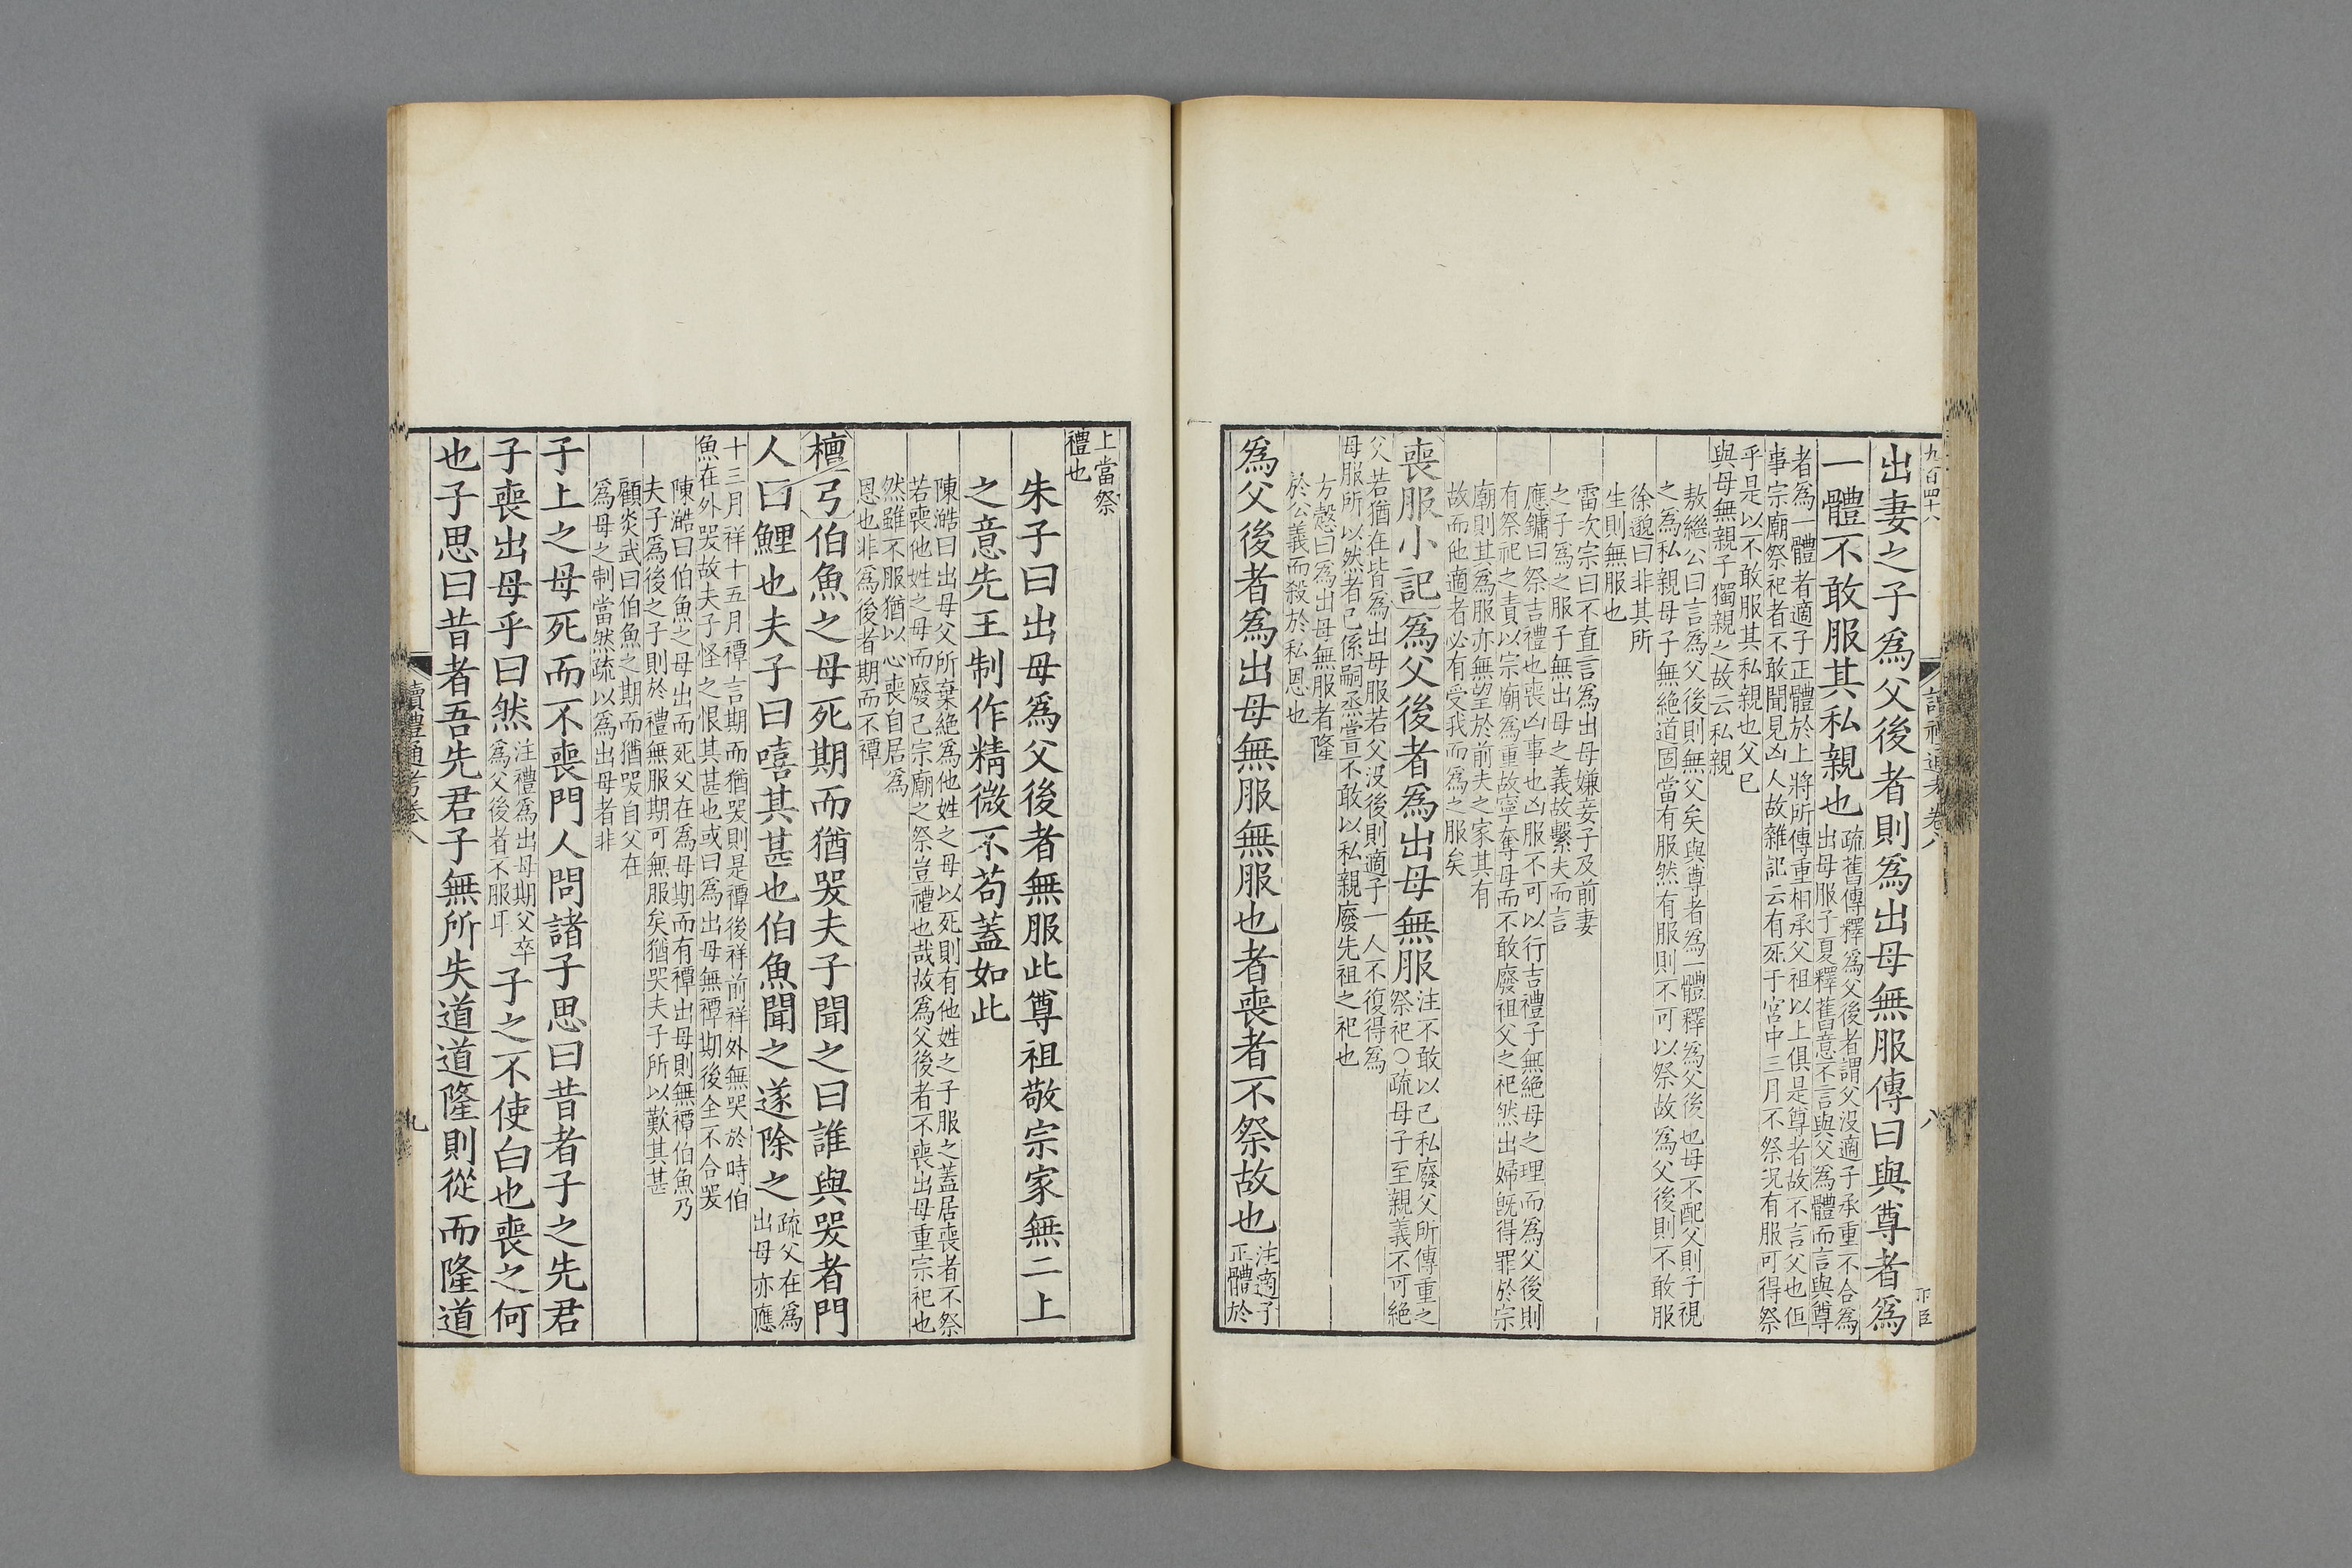 九百四十八
讀禮通考卷八
八
出妻之子爲父後者則爲出母無服傳曰與尊者爲
一體不敢服其私親也
疏舊傳釋爲父後者謂父沒適子承重不合爲
出母服子夏釋舊意不言與父爲體而言與尊
者爲一體者適子正體於上將所傳重相承父祖以上俱是尊者故不言父也但
事宗廟祭祀者不敢聞見凶人故雜記云有死于宮中三月不祭況有服可得祭
乎是以不敢服其私親也父已
與母無親子獨親之故云私親
敖繼公曰言爲父後則無父矣與尊者爲一體釋爲父後也母不配父則子視
之爲私親母子無絶道固當有服然有服則不可以祭故爲父後則不敢服
徐邈曰非其所
生則無服也
雷次宗曰不直言爲出母嫌妾子及前妻
之子爲之服子無出母之義故繫夫而言
應鏞曰祭吉禮也喪凶事也凶服不可以行吉禮子無絶母之理而爲父後則
有祭祀之責以宗廟爲重故寧奪母而不敢廢祖父之祀然出婦旣得罪於宗
廟則其爲服亦無望於前夫之家其有
故而他適者必有受我而爲之服矣
喪服小記爲父後者爲出母無服
注不敢以己私廢父所傳重之
祭祀○疏母子至親義不可絶
父若猶在皆爲出母服若父沒後則適子一人不復得爲
母服所以然者己係嗣烝嘗不敢以私親廢先祖之祀也
方慤曰爲出母無服者隆
於公義而殺於私恩也
爲父後者爲出母無服無服也者喪者不祭故也
注適子
正體於
上當祭
禮也
朱子曰出母爲父後者無服此尊祖敬宗家無二上
之意先王制作精微不苟蓋如此
陳澔曰出母父所棄絶爲他姓之母以死則有他姓之子服之蓋居喪者不祭
若喪他姓之母而廢己宗廟之祭豈禮也哉故爲父後者不喪出母重宗祀也
然雖不服猶以心喪自居爲
恩也非爲後者期而不禫
檀弓伯魚之母死期而猶哭夫子聞之曰誰與哭者門
人曰鯉也夫子曰嘻其甚也伯魚聞之遂除之
疏父在爲
出母亦應
十三月祥十五月禫言期而猶哭則是禫後祥前祥外無哭於時伯
魚在外哭故夫子怪之恨其甚也或曰爲出母無禫期後全不合哭
陳澔曰伯魚之母出而死父在爲母期而有禫出母則無禫伯魚乃
夫子爲後之子則於禮無服期可無服矣猶哭夫子所以歎其甚
顧炎武曰伯魚之期而猶哭自父在
爲母之制當然疏以爲出母者非
子上之母死而不喪門人問諸子思曰昔者子之先君
子喪出母乎曰然
注禮爲出母期父卒
爲父後者不服耳
子之不使白也喪之何
也子思曰昔者吾先君子無所失道道隆則從而隆道
讀禮通考卷八
九